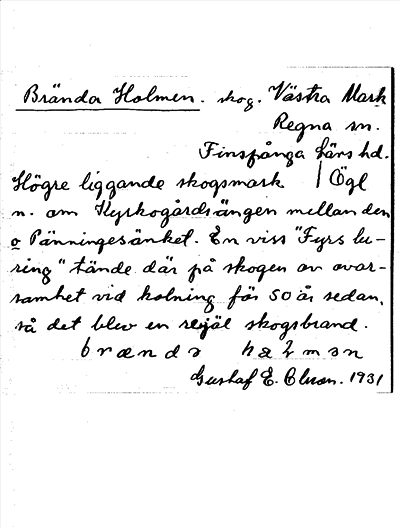 Brända Holmen. skog. Västra Mark
Regna sn.
Finspånga läns hd.
Högre liggande skogsmark / Ögl
n. om Kyrkogårdsängen mellan den
o Pänningesänket. En viss "Fyrs lu-
ring" tände där på skogen av ovar-
samhet vid kolning för 50 år sedan,
så det blev en rejäl skogsbrand.
brændə
Gustaf E. Olsson. 1931